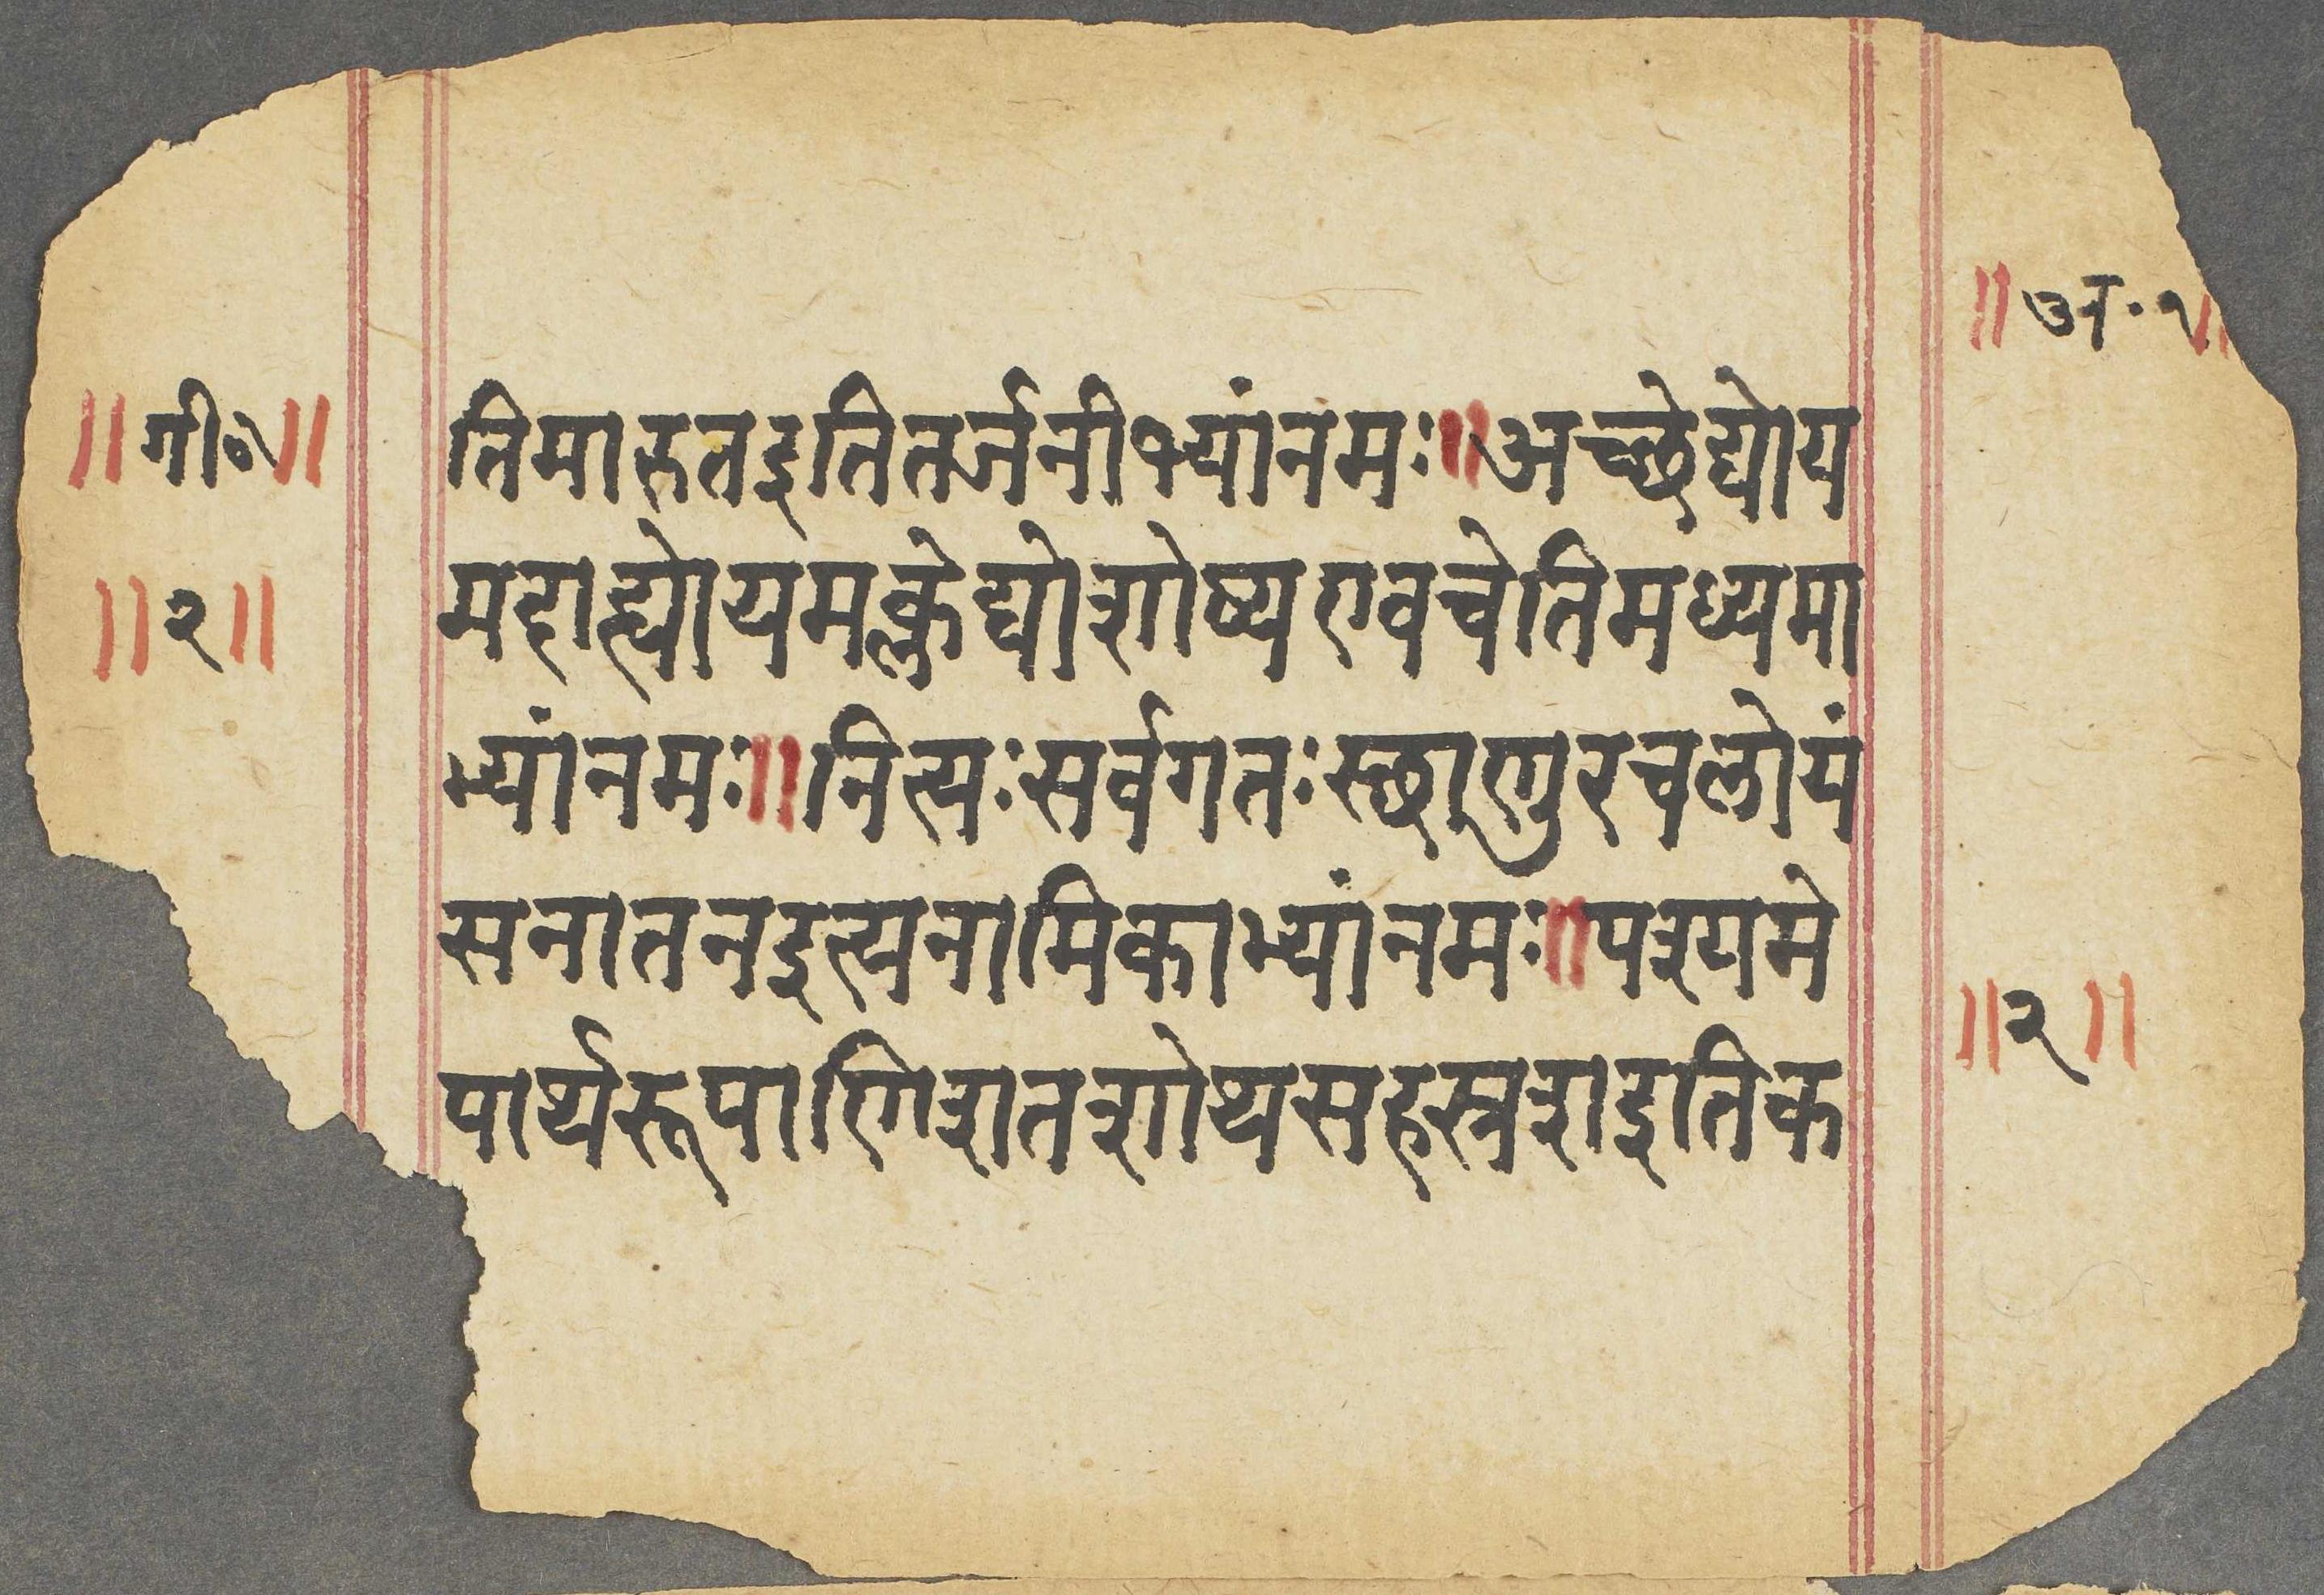 ॥अ॰१॥
॥गी॰॥
तिमारुतइतितर्जनीभ्यांनमः॥अच्छेद्योय
॥२॥
मदाह्योयमक्लेद्योशोष्यएवचेतिमध्यमा
भ्यांनमः॥नित्यःसर्वगतःस्छाणुरचलोयं
सनातनइत्यनामिकाभ्यांनमः॥पश्यमे
॥२॥
पार्थरूपाणिशतशोथसहस्रशइतिक